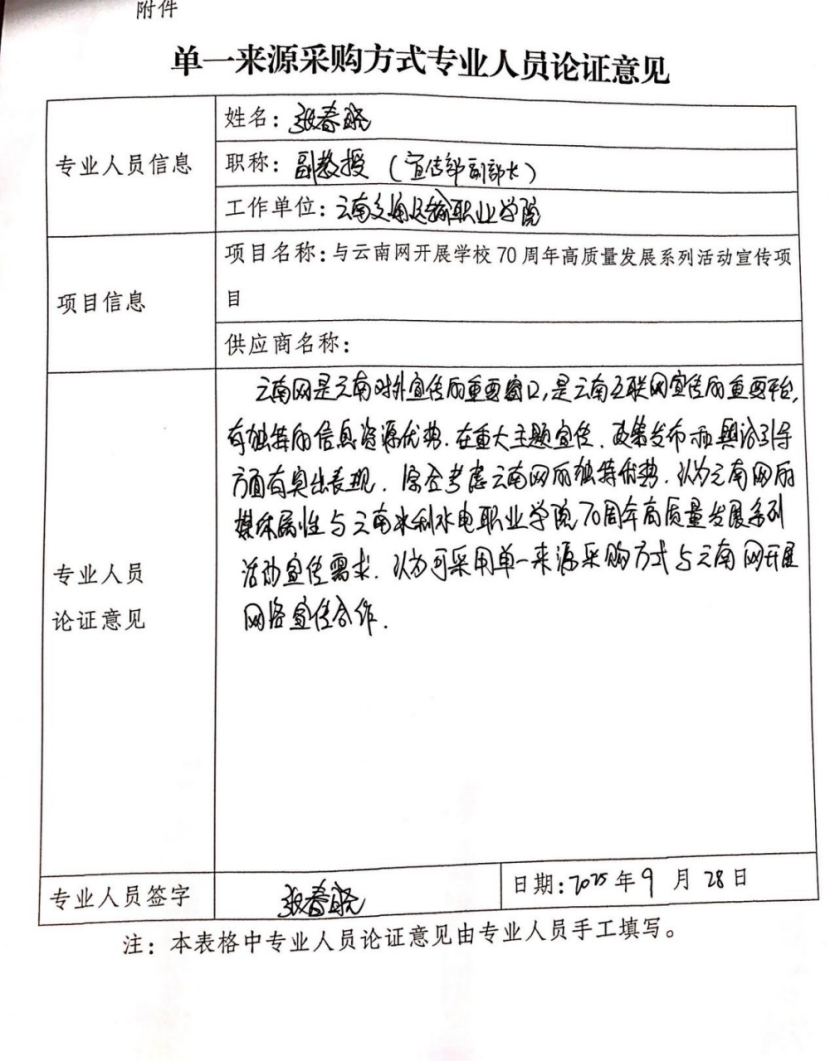 附件
单一来源采购方式专业人员论证意见
专业人员信息
姓名：张春晓
职称：副教授（宣传部副部长）
工作单位：云南交通运输职业学院
项目信息
项目名称：与云南网开展学校70周年高质量发展系列活动宣传项
目
供应商名称：
专业人员
论证意见
云南网是云南对外宣传的重要窗口,是云南互联网宣传的重要平台,
有独特的信息资源优势.在重大主题宣传.政策发布和舆论引导
方面有突出表现.综合考虑云南网的独特优势.认为云南网的
媒体属性与云南水利水电职业学院70周年高质量发展系列
活动宣传需求.认为可采用单一来源采购方式与云南网开展
网络宣传合作.
专业人员签字
张春晓
日期:2025年9月28日
注：本表格中专业人员论证意见由专业人员手工填写。